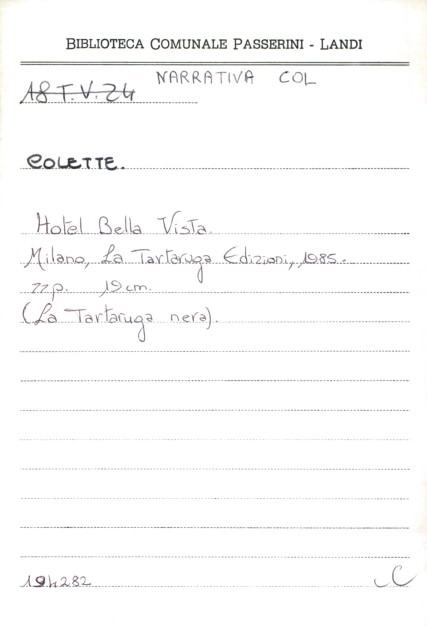 BIBLIOTECA COMUNALE PASSERINI - LANDI
NARRATIVA COL
18 T.V.24
COLETTE.
Hotel Bella Vista.
Milano, La Tartaruga Edizioni, 1985.
77p. 19 cm.
(La Tartaruga nera).
194282
C